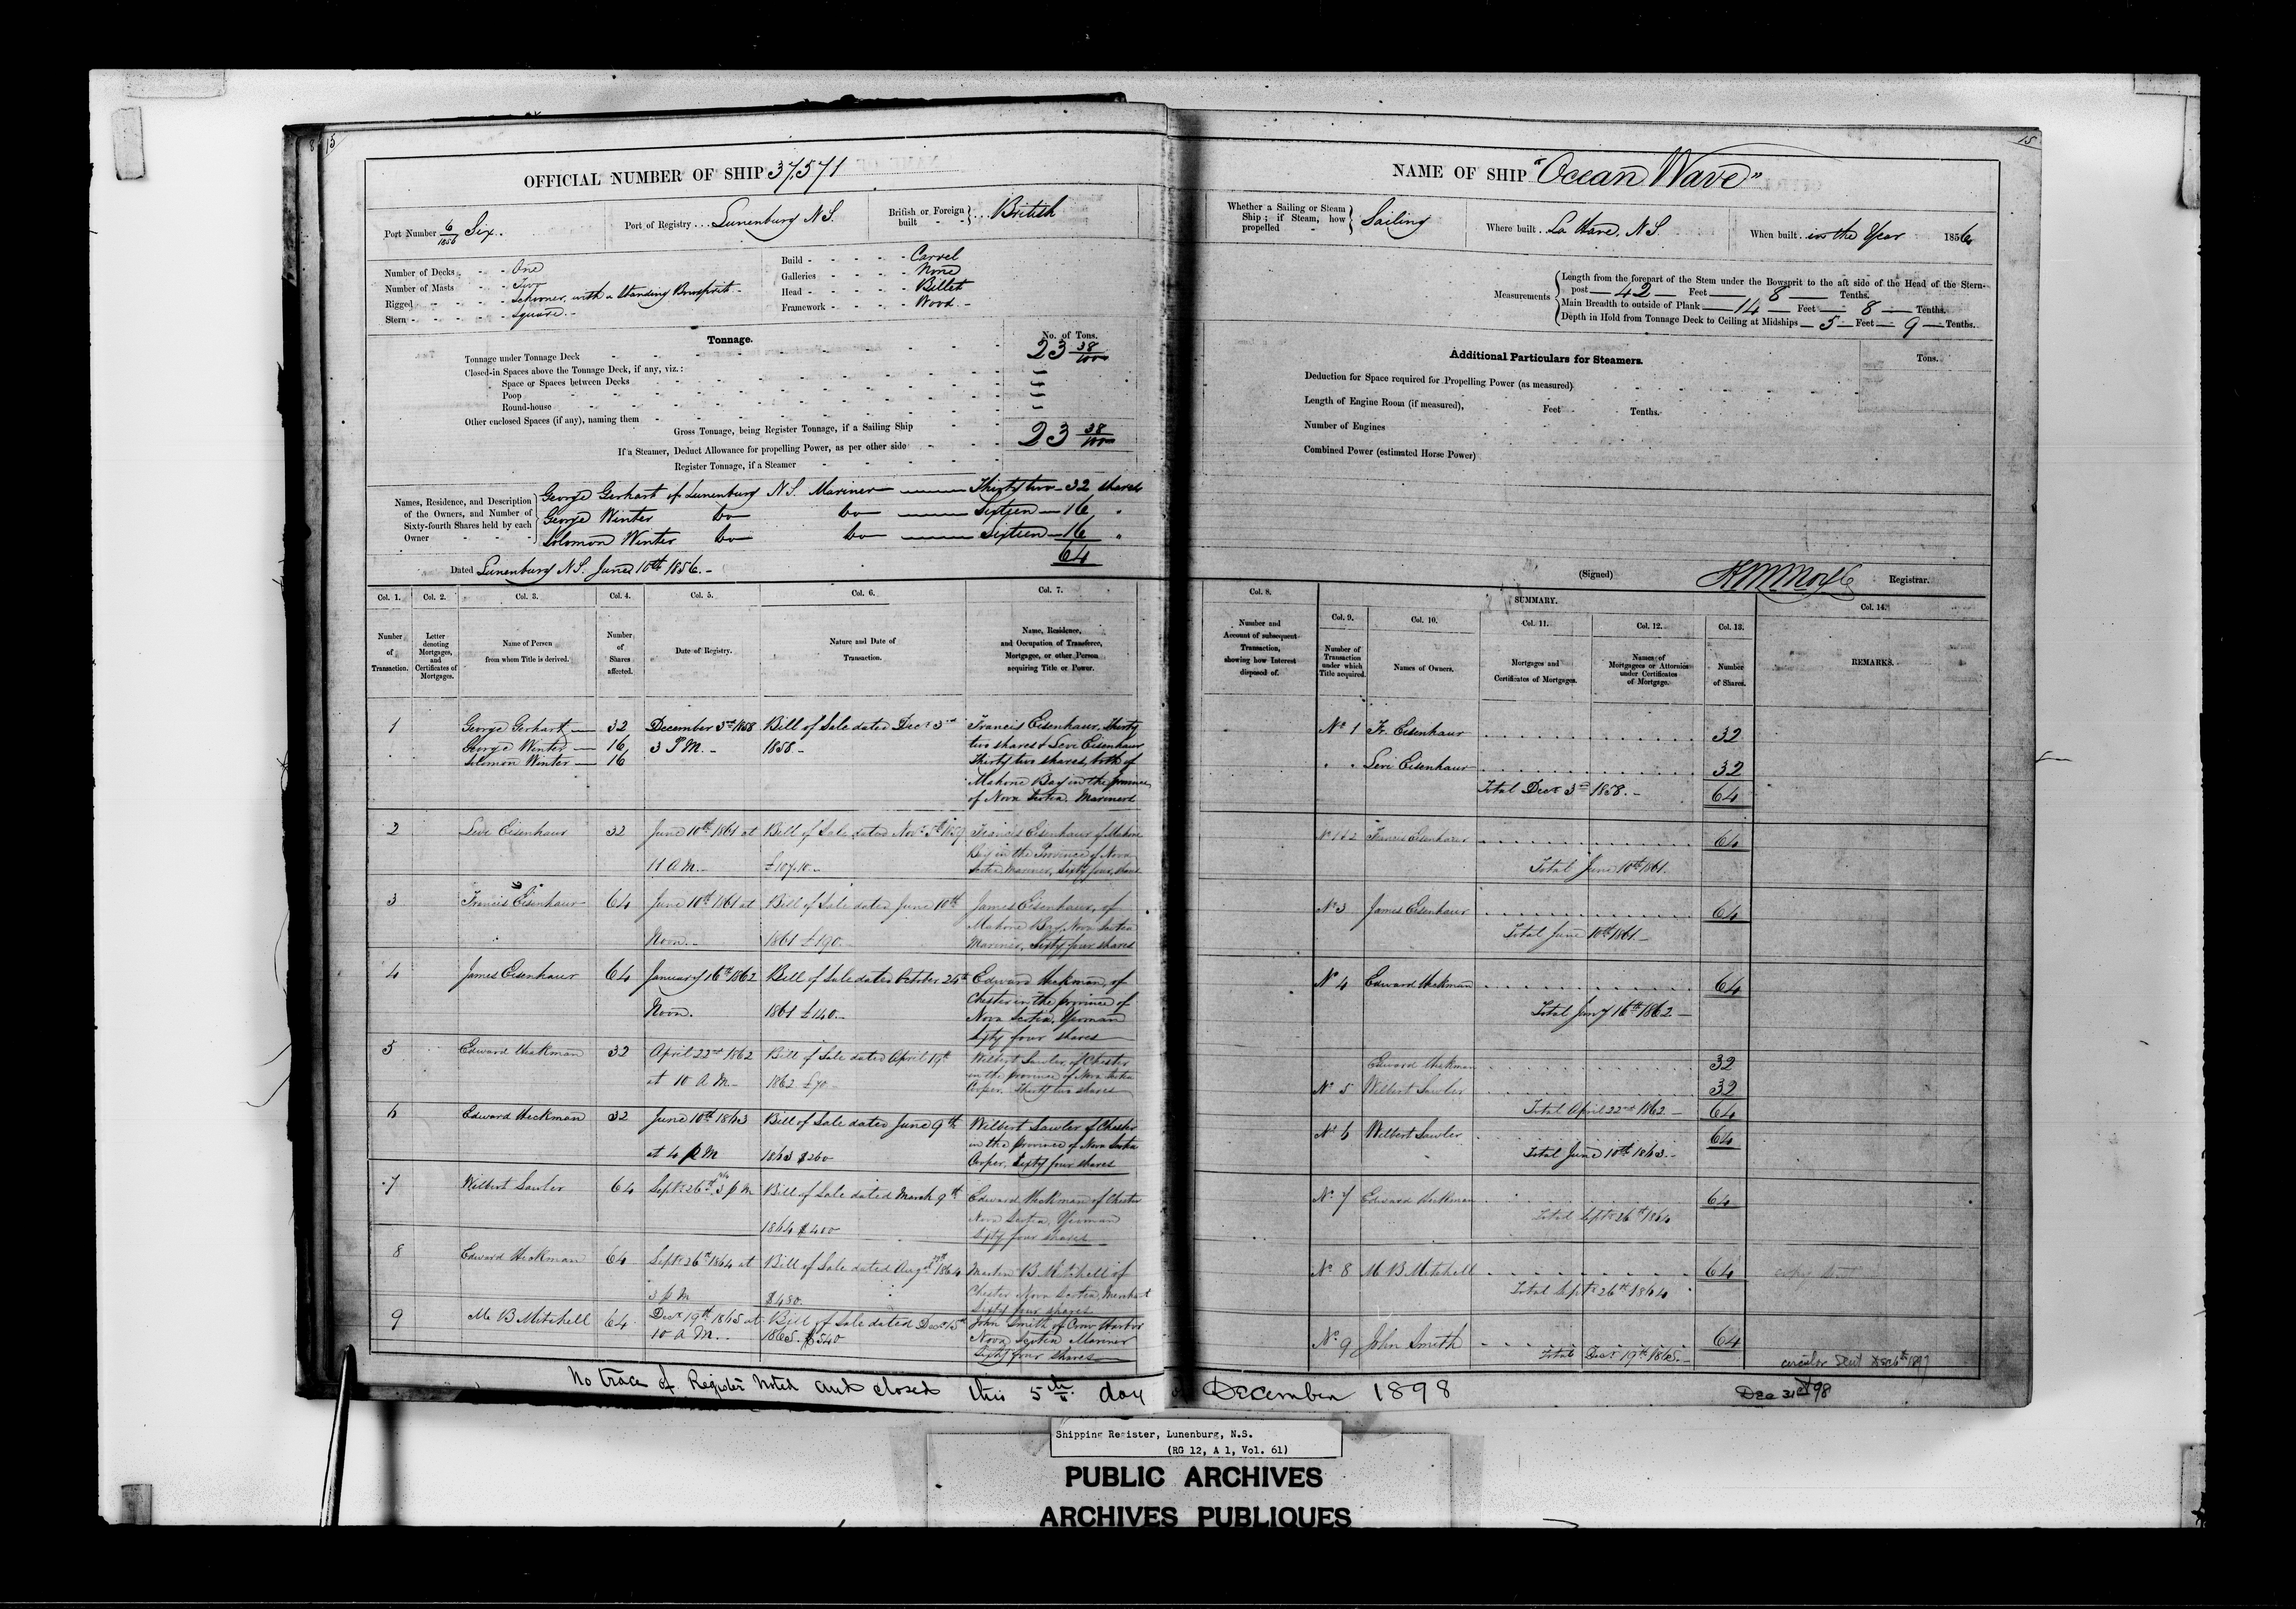 15
OFFICIAL NUMBER OF SHIP 37571
Port Number 6/1856 Six.
Port of Registry Lunenburg N.S.
British or Foreign built British
Number of Decks One
Number of Masts Two
Rigged Schooner, with a Standing Bowsprit
Stern Square.
Build Carvel
Galleries None
Head Billet
Framework Wood
Tonnage.
No. of Tons.
Tonnage under Tonnage Deck 23 38/100
Closed-in Spaces above the Tonnage Deck, if any, viz.:
Space or Spaces between Decks
Poop
Round-house
Other enclosed Spaces (if any), naming them
Gross Tonnage, being Register Tonnage, if a Sailing Ship 23 38/100
If a Steamer, Deduct Allowance for propelling Power, as per other side
Register Tonnage, if a Steamer
Names, Residence, and Description of the Owners, and Number of Sixty-fourth Shares held by each Owner
George Gerhart of Lunenburg N.S. Mariner Thirty two 32 shares
George Winter Do Do Sixteen 16 "
Solomon Winter Do Do Sixteen 16 "
64
Dated Lunenburg N.S. June 10th 1856.
Col. 1. Col. 2. Col. 3. Col. 4. Col. 5. Col. 6. Col. 7.
Number of Transaction.
Letter denoting Mortgages, and Certificates of Mortgages.
Name of Person from whom Title is derived.
Number of Shares affected.
Date of Registry.
Nature and Date of Transaction.
Name, Residence, and Occupation of Transferee, Mortgagee, or other Person acquiring Title or Power.
1 George Gerhart 32 December 3rd 1858 Bill of Sale dated Decr 3rd Francis Eisenhaur, Thirty
George Winter 16 3 P.M. 1858 two shares & Levi Eisenhaur
Solomon Winter 16 Thirty two shares, both of
Mahone Bay in the province
of Nova Scotia Mariners
2 Levi Eisenhaur 32 June 10th 1861 at Bill of Sale dated Novr Francis Eisenhaur of Mahone
Bay in the Province of Nova
11 A.M. £107.10 Scotia Mariner, Sixty four shares
3 Francis Eisenhaur 64 June 10th 1861 at Bill of Sale dated June 10th James Eisenhaur, of
Mahone Bay, Nova Scotia
Noon. 1861 £190. Mariner, Sixty four shares
4 James Eisenhaur 64 January 16th 1862 Bill of Sale dated October 24th Edward Heckman, of
Chester in the province of
Noon. 1861 £140. Nova Scotia, Yeoman
Sixty four shares
5 Edward Heckman 32 April 22nd 1862 Bill of Sale dated April 19th Wilbert Sawler, of Chester
at 10 A.M. 1862 £70 in the province of Nova Scotia
Cooper. Thirty two shares
6 Edward Heckman 32 June 10th 1863 Bill of Sale dated June 9th Wilbert Sawler of Chester
in the province of Nova Scotia
at 4 P.M 1863 $260 Cooper. Sixty four shares
7 Wilbert Sawler 64 Septr 26th 3 p M Bill of Sale dated March 9th Edward Heckman of Chester
Nova Scotia, Yeoman
1864 $400 Sixty four shares
8 Edward Heckman 64 Septr 26th 1864 at Bill of Sale dated Augt 1864 Martin B Mitchell of
Chester Nova Scotia, Merchant
3 p M $480. Sixty four shares
9 M B Mitchell 64 Decr 19th 1865 at Bill of Sale dated Decr 15th John Smith of Harbor
10 A M. 1865. $540 Nova Scotia Mariner
Sixty four shares
15
NAME OF SHIP "Ocean Wave"
Whether a Sailing or Steam Ship; if Steam, how propelled Sailing
Where built La Have, N.S.
When built in the Year 1856
Measurements
Length from the forepart of the Stem under the Bowsprit to the aft side of the Head of the Stern-
post 42 Feet 8 Tenths.
Main Breadth to outside of Plank 14 Feet 8 Tenths.
Depth in Hold from Tonnage Deck to Ceiling at Midships 5 Feet 9 Tenths.
Additional Particulars for Steamers.
Tons.
Deduction for Space required for Propelling Power (as measured)
Length of Engine Room (if measured), Feet Tenths.
Number of Engines
Combined Power (estimated Horse Power)
(Signed) Registrar.
Col. 8.
Number and Account of subsequent Transaction, showing how Interest disposed of.
SUMMARY.
Col. 9. Col. 10. Col. 11. Col. 12. Col. 13. Col. 14.
Number of Transaction under which Title acquired.
Names of Owners.
Mortgages and Certificates of Mortgages.
Names of Mortgagees or Attornies under Certificates of Mortgage.
Number of Shares.
REMARKS.
No 1 Fr. Eisenhaur 32
" " Levi Eisenhaur 32
Total Decr 3rd 1858. 64
No 1&2 Francis Eisenhaur 64
Total June 10th 1861.
No 3 James Eisenhaur 64
Total June 10th 1861
No 4 Edward Heckman 64
Total Jany 16th 1862
Edward Heckman 32
No 5 Wilbert Sawler 32
Total April 22nd 1862 64
No 6 Wilbert Sawler 64
Total June 10th 1863.
No 7 Edward Heckman 64
Total Septr 26th 1864
No 8 M B Mitchell 64
Total Septr 26th 1864
No 9 John Smith 64
Total Decr 19th 1865.
circular sent 1897
No trace of Register noted and closed this 5th day of December 1898
Dec 31st 98
Shipping Register, Lunenburg, N.S.
(RG 12, A 1, Vol. 61)
PUBLIC ARCHIVES
ARCHIVES PUBLIQUES